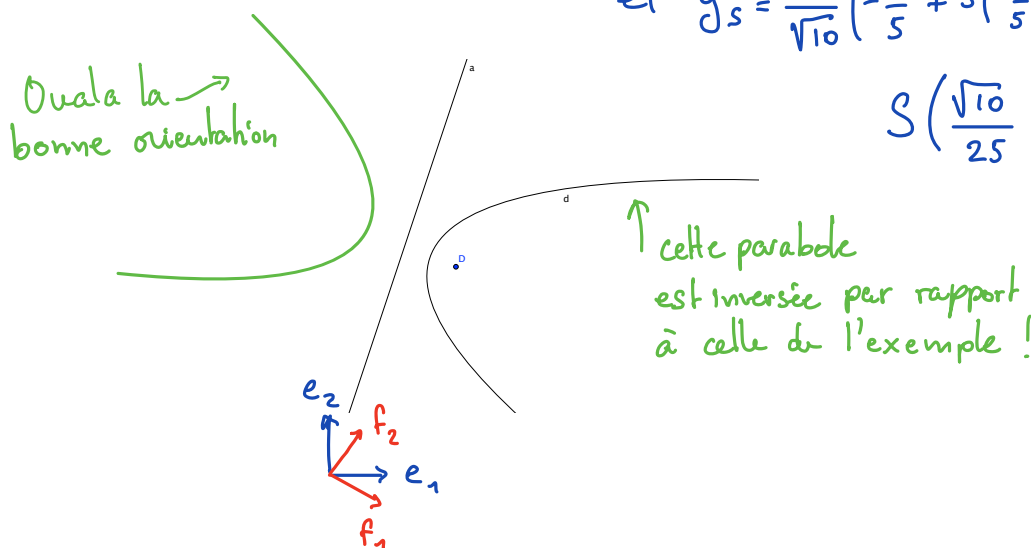 et y_S = 1/√10 (- /5 + 3( /5
a
Ouala la →
bonne orientation
S ( √10/25
d
D
↑ cette parabole
est inversée par rapport
à celle de l'exemple !
e₂
f₂
e₁
f₁